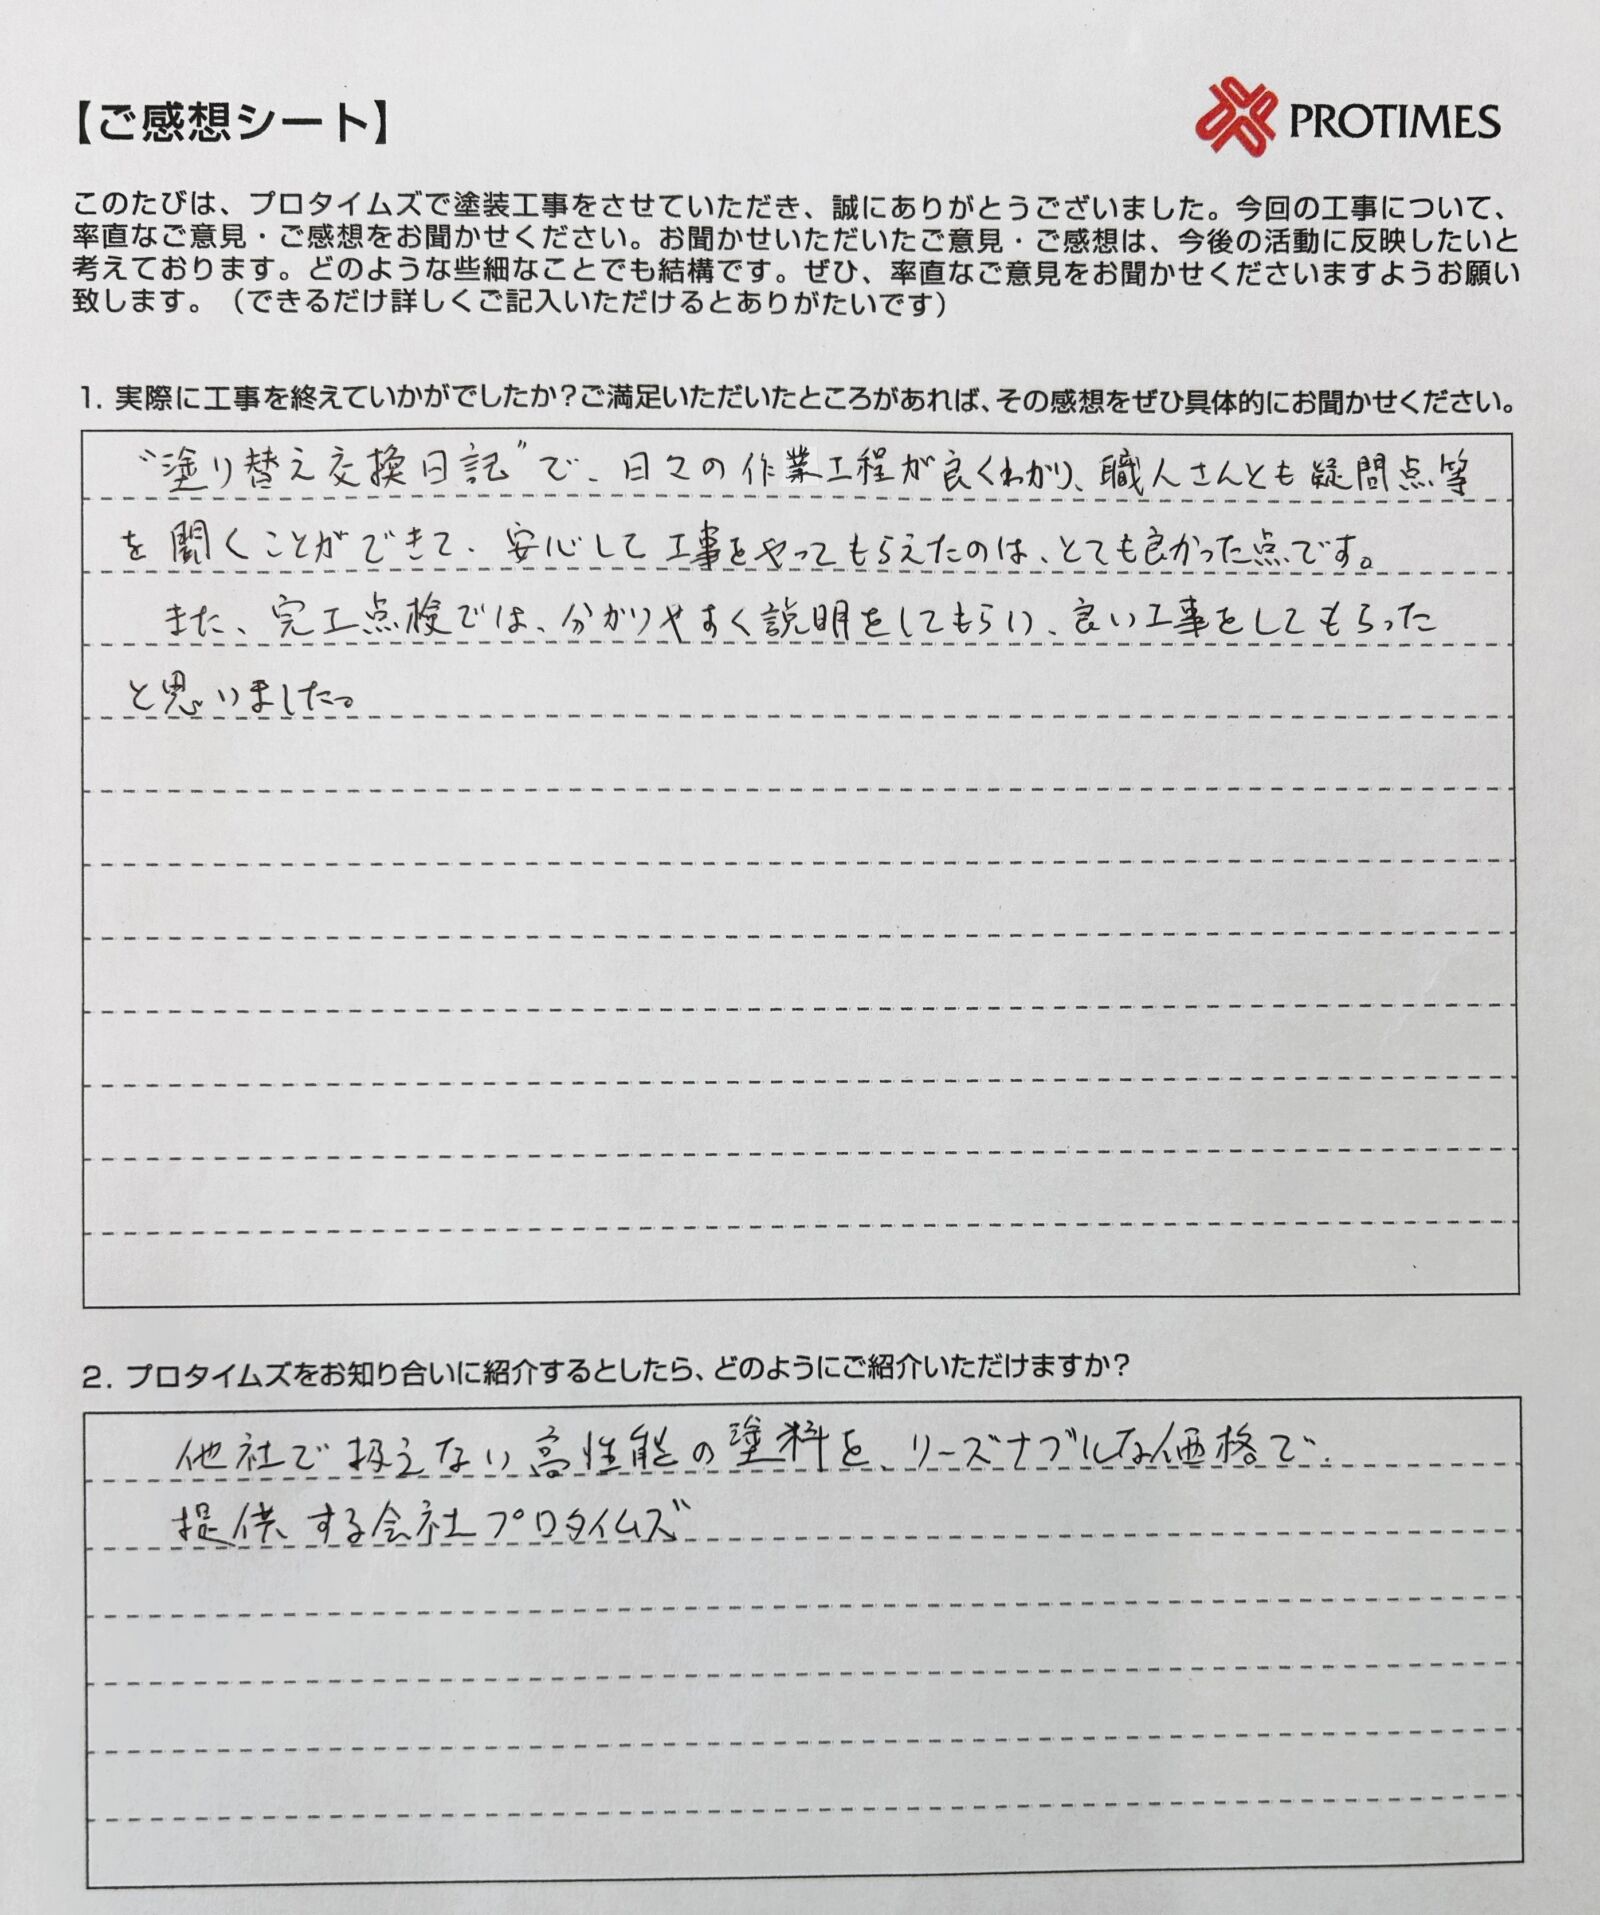 【ご感想シート】
PROTIMES
このたびは、プロタイムズで塗装工事をさせていただき、誠にありがとうございました。今回の工事について、
率直なご意見・ご感想をお聞かせください。お聞かせいただいたご意見・ご感想は、今後の活動に反映したいと
考えております。どのような些細なことでも結構です。ぜひ、率直なご意見をお聞かせくださいますようお願い
致します。（できるだけ詳しくご記入いただけるとありがたいです）
1. 実際に工事を終えていかがでしたか？ご満足いただいたところがあれば、その感想をぜひ具体的にお聞かせください。
“塗り替え交換日記”で、日々の作業工程が良くわかり、職人さんとも疑問点等
を聞くことができて、安心して工事をやってもらえたのは、とても良かった点です。
また、完工点検では、分かりやすく説明をしてもらい、良い工事をしてもらった
と思いました。
2. プロタイムズをお知り合いに紹介するとしたら、どのようにご紹介いただけますか？
他社で扱えない高性能の塗料を、リーズナブルな価格で、
提供する会社プロタイムズ